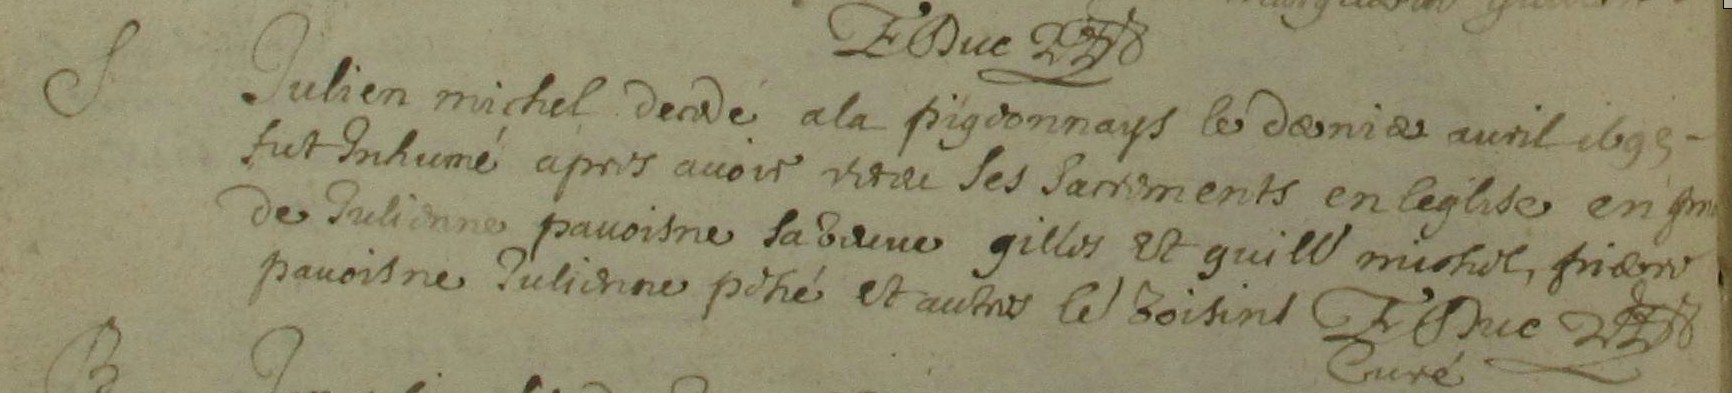 F Duc
S Julien michel decedé a la pigeonnays le dernier auril 1695
fut Inhumé apres auoir receu ses sacrements en leglise en
de Julienne pauoisne sa veuue gilles et guill michel, pierre
pauoisne Julienne pihé et autres voisins F Duc
Curé
B